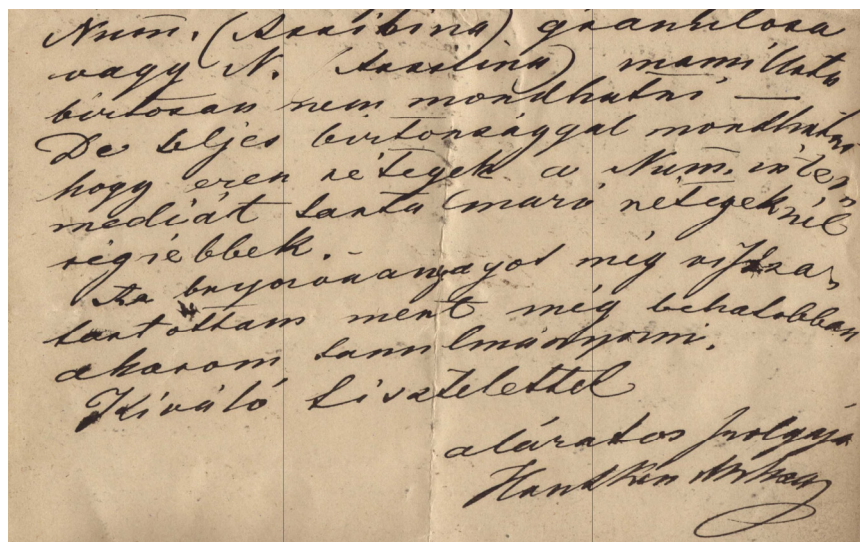 Num̄. (Assilina) granulosa
vagy N. (Assilina) mamillata
biztosan nem mondhatni —
De teljes biztonsággal mondhatni
hogy ezen rétegek a Num̄. inter-
mediát tartalmazó rétegeknél
régiebbek.
Az bryozoaanyagot még vissza-
tartottam mert még behatóbban
akarom tanulmányozni.
Kiváló tisztelettel
alázatos szolgája
Hantken Miksa